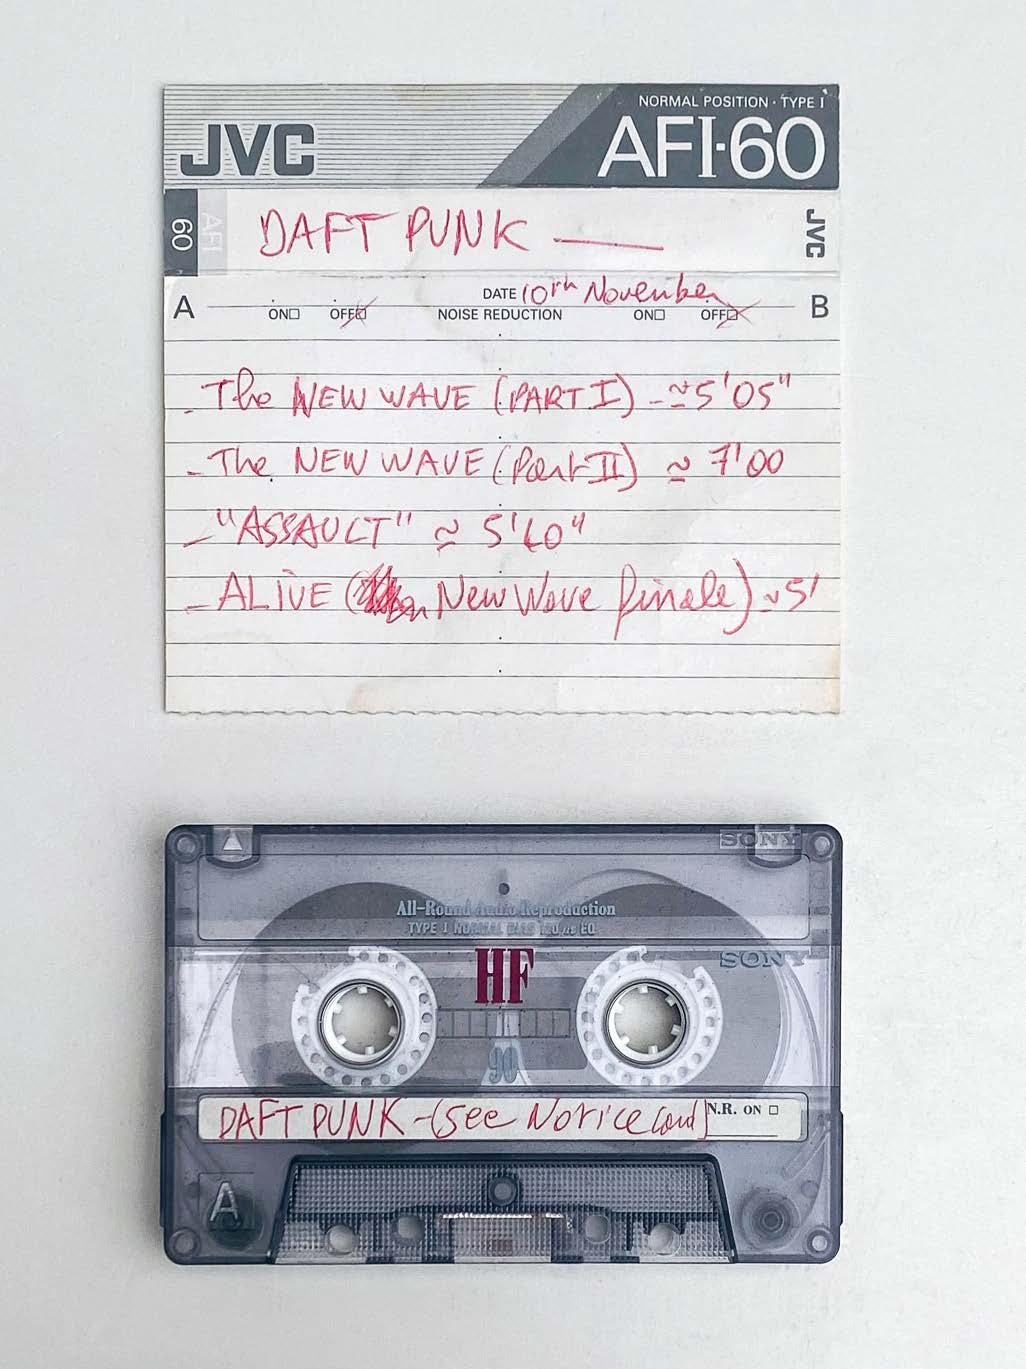 NORMAL POSITION · TYPE I
JVC
AFI-60
60 AFI
DAFT PUNK —
JVC
A
DATE 10th November
B
ON□ OFF□ NOISE REDUCTION ON□ OFF□
- The NEW WAVE (PART I) - ≃ 5'05"
- The NEW WAVE (Part II) ≃ 7'00
- "ASSAULT" ≃ 5'40"
- ALIVE (New Wave finale) ~ 5'
SONY
All-Round Audio Reproduction
TYPE I NORMAL BIAS 120 μs EQ
HF
SONY
90
DAFT PUNK - (See Notice Card)
N.R. ON □
A